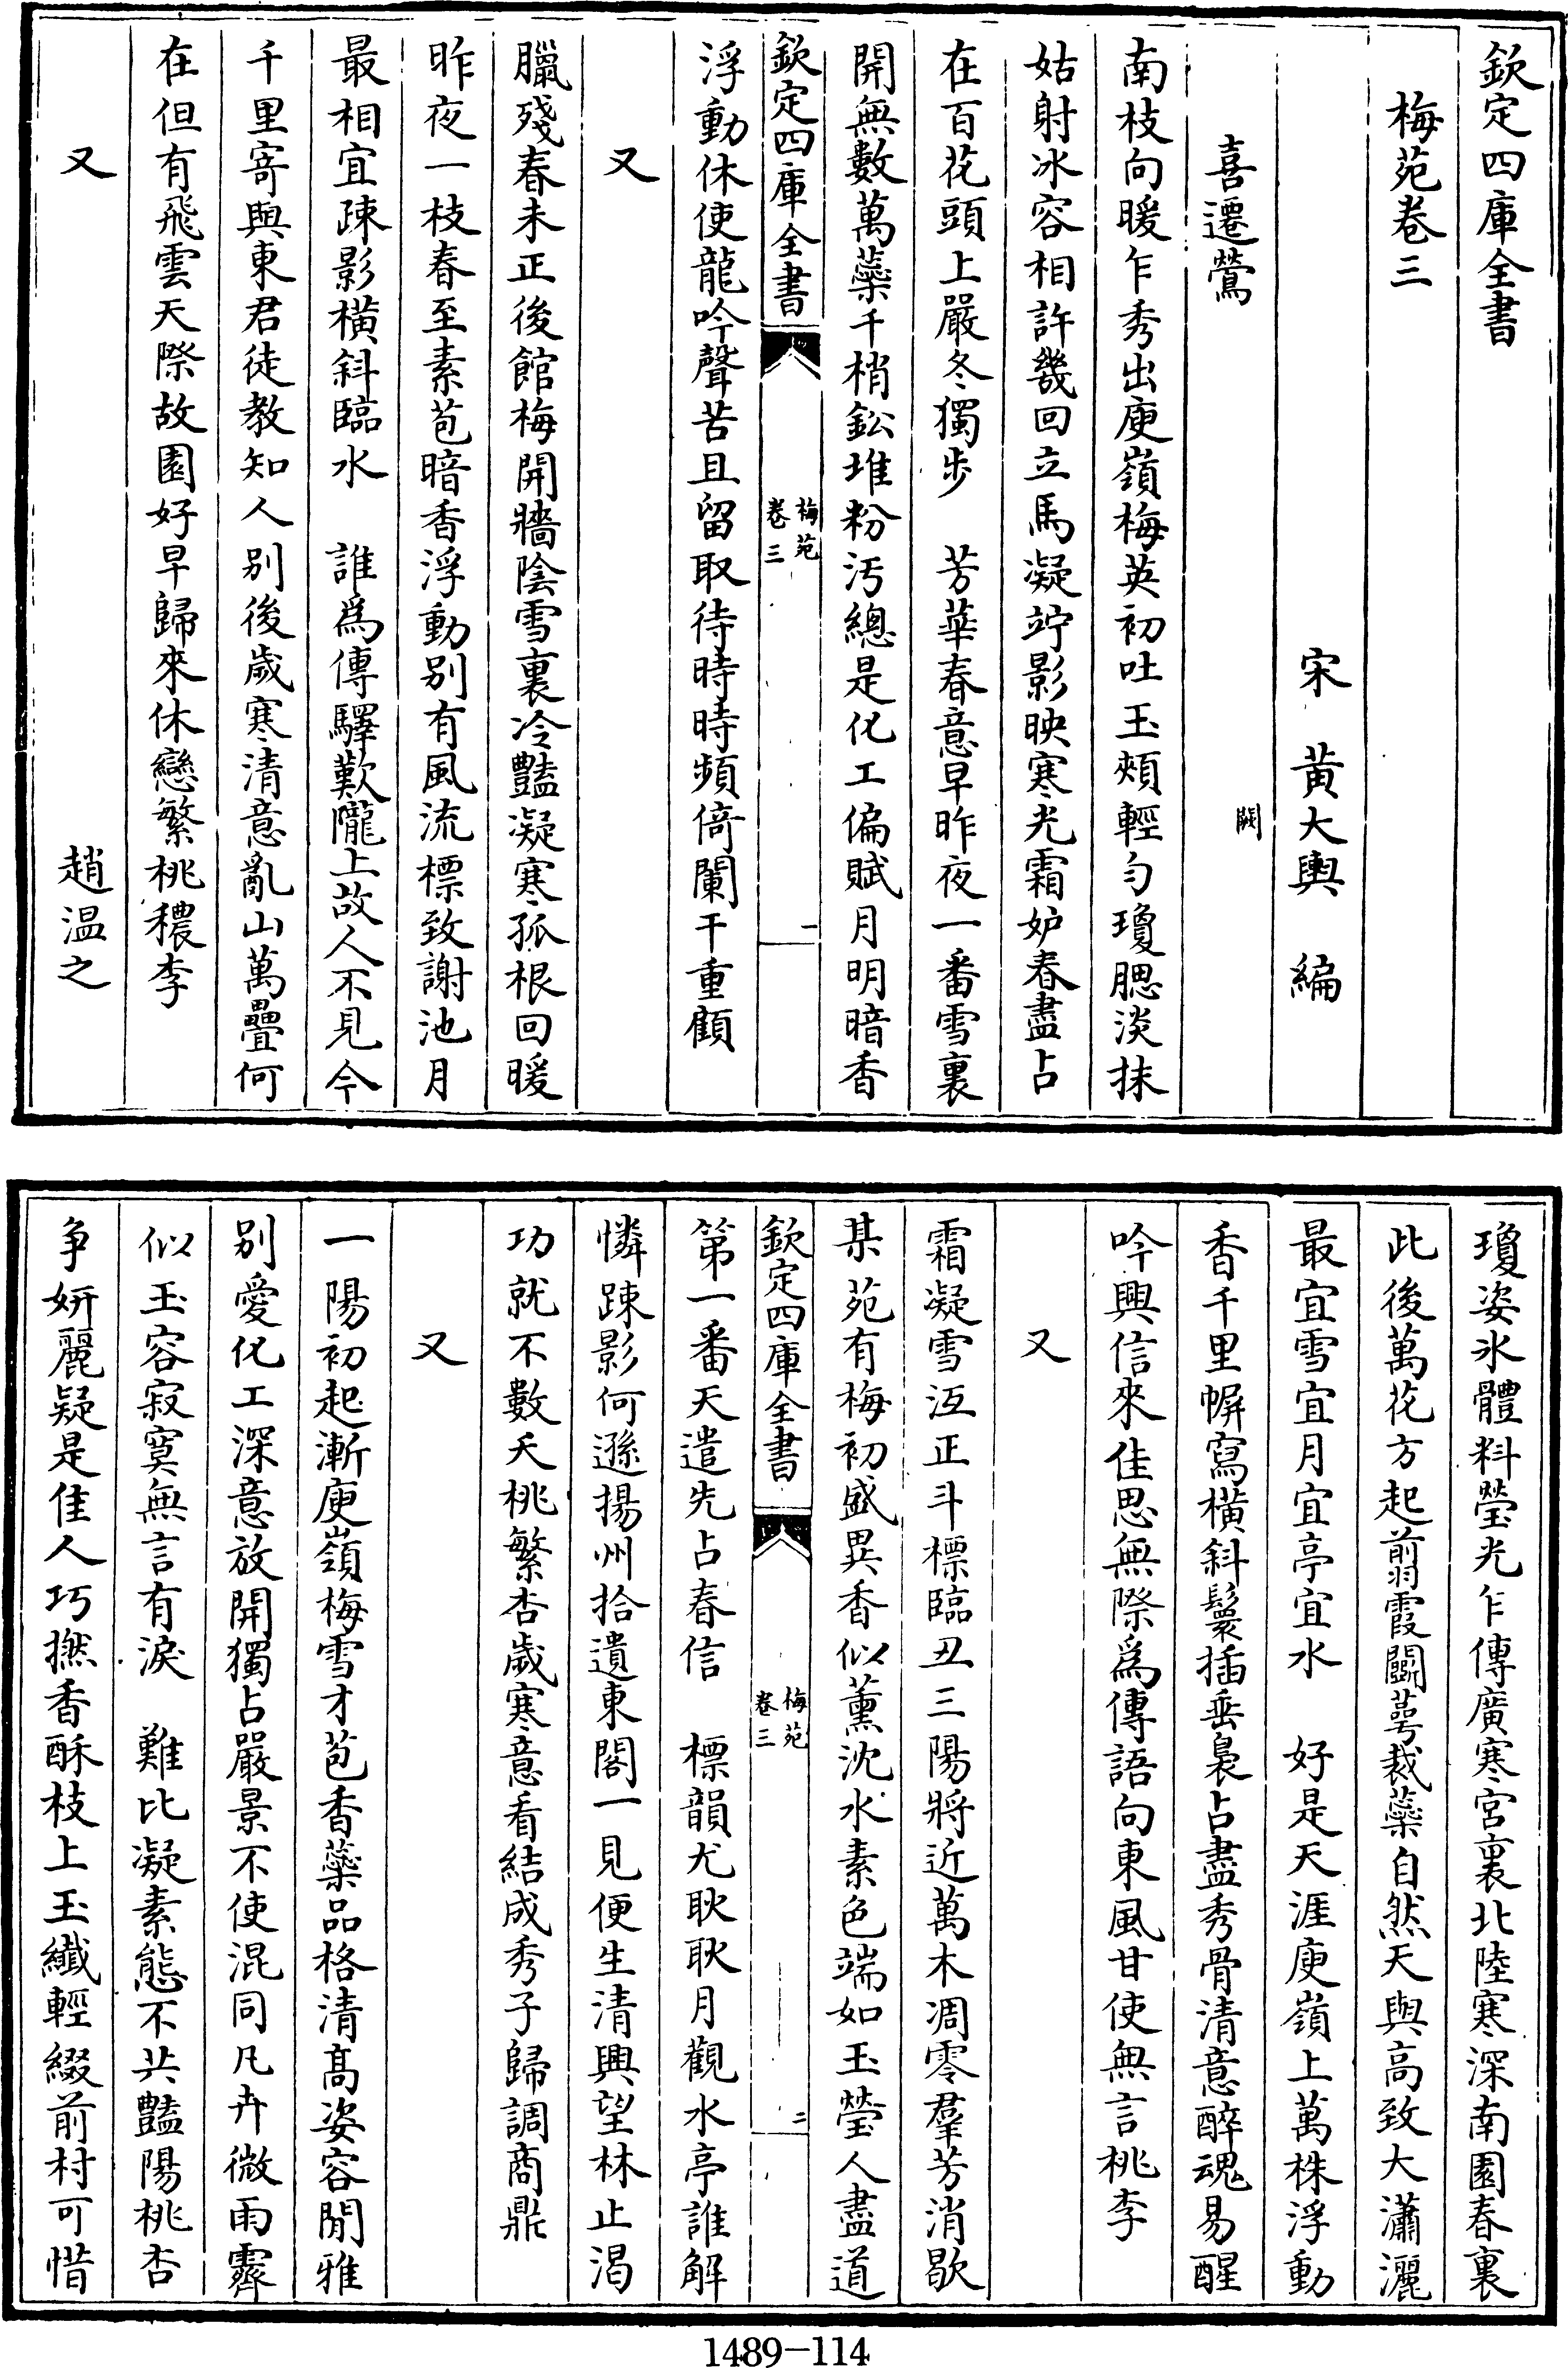 欽定四庫全書
梅苑卷三
宋　黃大輿　編
喜遷鶯　闕
南枝向暖乍秀出庾嶺梅英初吐玉頰輕勻瓊腮淡抹
姑射冰容相許幾回立馬凝竚影映寒光霜妒春盡占
在百花頭上嚴冬獨步　芳華春意早昨夜一番雪裏
開無數萬蘂千梢鉛堆粉汚總是化工偏賦月明暗香
欽定四庫全書
梅苑
卷三
一
浮動休使龍吟聲苦且留取待時時頻倚闌干重顧
又
臘殘春未正後館梅開牆陰雪裏冷豔凝寒孤根回暖
昨夜一枝春至素苞暗香浮動别有風流標致謝池月
最相宜疎影橫斜臨水　誰爲傳驛歎隴上故人不見今
千里寄與東君徒教知人别後歲寒清意亂山萬疊何
在但有飛雲天際故園好早歸來休戀繁桃穠李
又　趙温之
瓊姿冰體料瑩光乍傳廣寒宮裏北陸寒深南園春裏
此後萬花方起翦霞闘萼裁蘂自然天與高致大瀟灑
最宜雪宜月宜亭宜水　好是天涯庾嶺上萬株浮動
香千里幈寫橫斜鬟插垂裊占盡秀骨清意醉魂易醒
吟興信來佳思無際爲傳語向東風甘使無言桃李
又
霜凝雪沍正斗標臨丑三陽將近萬木凋零羣芳消歇
某苑有梅初盛異香似薫沈水素色端如玉瑩人盡道
欽定四庫全書
梅苑
卷三
二
第一番天遣先占春信　標韻尤耿耿月觀水亭誰解
憐踈影何遜揚州拾遺東閣一見便生清興望林止渴
功就不數夭桃繁杏歲寒意看結成秀子歸調商鼎
又
一陽初起漸庾嶺梅雪才苞香蘂品格清髙姿容閒雅
别愛化工深意放開獨占嚴景不使混同凡卉微雨霽
似玉容寂寞無言有淚　難比凝素態不共豔陽桃杏
争妍麗疑是佳人巧撚香酥枝上玉纖輕綴前村可惜
1489—114